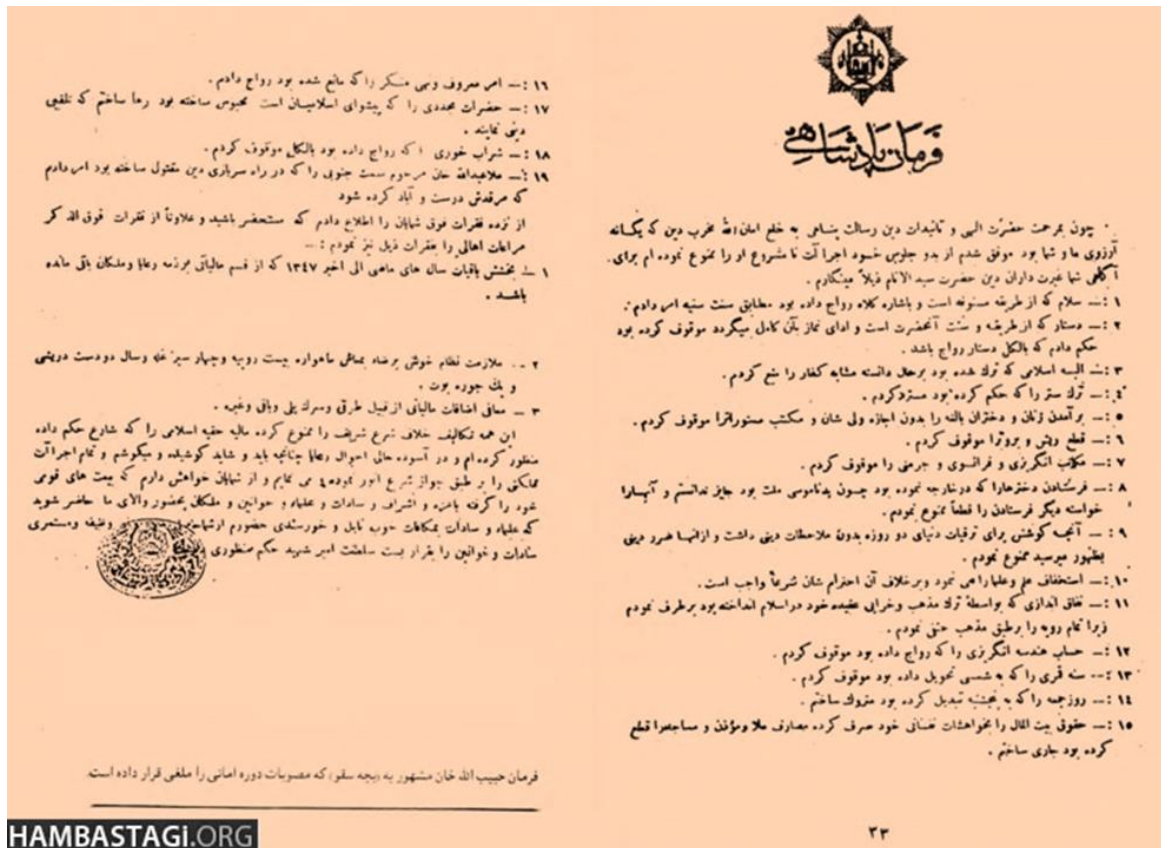 فرمان پادشاهی
چون بمرحمت حضرت الهی و تائیدات دین رسالت پناهی به خلع امان الله مخرب دین که یگانه
آرزوی ما و شما بود موفق شدم از بدو جلوس خود اجراآت نا مشروع او را ممنوع نموده ام برای
آگاهی شما غیرت داران دین حضرت سید الانام ذیلاً مینگارم .
۱ :— سلام که از طریقه مسنونه است و باشاره کلاه رواج داده بود مطابق سنت سنیه امر دادم .
۲ :— دستار که از طریقه و سنت آنحضرت است و ادای نماز بآن کامل میگردد موقوف کرده بود
حکم دادم که بالکل دستار رواج باشد .
۳ :— البسه اسلامی که ترك شده بود برحال دانسته مشابه کفار را منع کردم .
۴ :— ترك ستر را که حکم کرده بود مسترد کردم .
۵ :— برآمدن زنان و دختران بالغه را بدون اجازه ولی شان و مکتب مستوراترا موقوف کردم .
۶ :— قطع ریش و بروترا موقوف کردم .
۷ :— مکاتب انگریزی و فرانسوی و جرمنی را موقوف کردم .
۸ :— فرستادن دخترهارا که درخارجه نموده بود چون بدناموسی ملت بود جایز ندانستم و آنهارا
خواسته دیگر فرستادن را قطعاً ممنوع نمودم .
۹ :— آنچه کوشش برای ترقیات دنیای دو روزه بدون ملاحظات دینی داشت و ازانها ضرر دینی
بظهور میرسید ممنوع نمودم .
۱۰ :— استخفاف علم وعلما را می نمود وبرخلاف آن احترام شان شرعاً واجب است .
۱۱ :— نفاق اندازی که بواسطهٔ ترك مذهب وخرابی عقیده خود دراسلام انداخته بود برطرف نمودم
زیرا تمام رویه را برطبق مذهب حنفی نمودم .
۱۲ :— حساب هندسه انگریزی را که رواج داده بود موقوف کردم .
۱۳ :— سنه قمری را که به شمسی تحویل داده بود موقوف کردم .
۱۴ :— روز جمعه را که به پنجشنبه تبدیل کرده بود متروك ساختم .
۱۵ :— حقوق بیت المال را بخواهشات نفسانی خود صرف کرده مصارف ملا ومؤذن و مساجدرا قطع
کرده بود جاری ساختم .
۳۳
۱۶ :— امر معروف ونهی منکر را که مانع شده بود رواج دادم .
۱۷ :— حضرات مجددی را که پیشوای اسلامیان است محبوس ساخته بود رها ساختم که تلقین
دینی نمایند .
۱۸ :— شراب خوری را که رواج داده بود بالکل موقوف کردم .
۱۹ :— ملاعبدالله خان مرحوم سمت جنوبی را که در راه سربازی دین مقتول ساخته بود امر دادم
که مرقدش درست و آباد کرده شود
از نزده فقرات فوق شمایان را اطلاع دادم که مستحضر باشید و علاوتاً از فقرات فوق الذکر
مراعات اهالی را بفقرات ذیل نیز نمودم :—
۱ — بخشش باقیات سال های ماضی الی اخیر ۱۳۴۷ که از قسم مالیاتی برذمه رعایا وملکان باقی مانده
باشد .
۲ — ملازمت نظام خوش برضاء بمعاش ماهواره بیست روپیه وچهار سیر غله وسال دو دست دریشی
و یك جوره بوت .
۳ — معافی اضافات مالیاتی از قبیل طرق وسرك پلی وبانی وغیره .
این همه تکالیف خلاف شرع شریف را ممنوع کرده مالیه حقه اسلامی را که شارع حکم داده
منظور کرده ام و در آسوده حالی احوال رعایا چنانچه باید و شاید کوشیده و میکوشم و تمام اجراآت
مملکتی را بر طبق جواز شرع انور نموده می نمایم و از شمایان خواهش دارم که بیعت های قومی
خود را گرفته باعزه و اشراف و سادات و علماء و خوانین و ملکان بحضور والای ما حاضر شوید
که علماء و سادات بمکافات خوب نایل و خورسندی حضورم وظیفه ومستمری
سادات و خوانین را بقرار بست سلطنت امیر شهید حکم منظوری
فرمان حبیب الله خان مشهور به «بچه سقو» که مصوبات دوره امانی را ملغی قرار داده است.
HAMBASTAGI.ORG